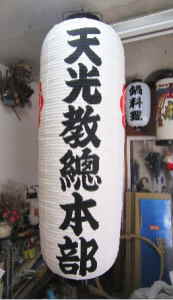 天光教總本部
鍋料理